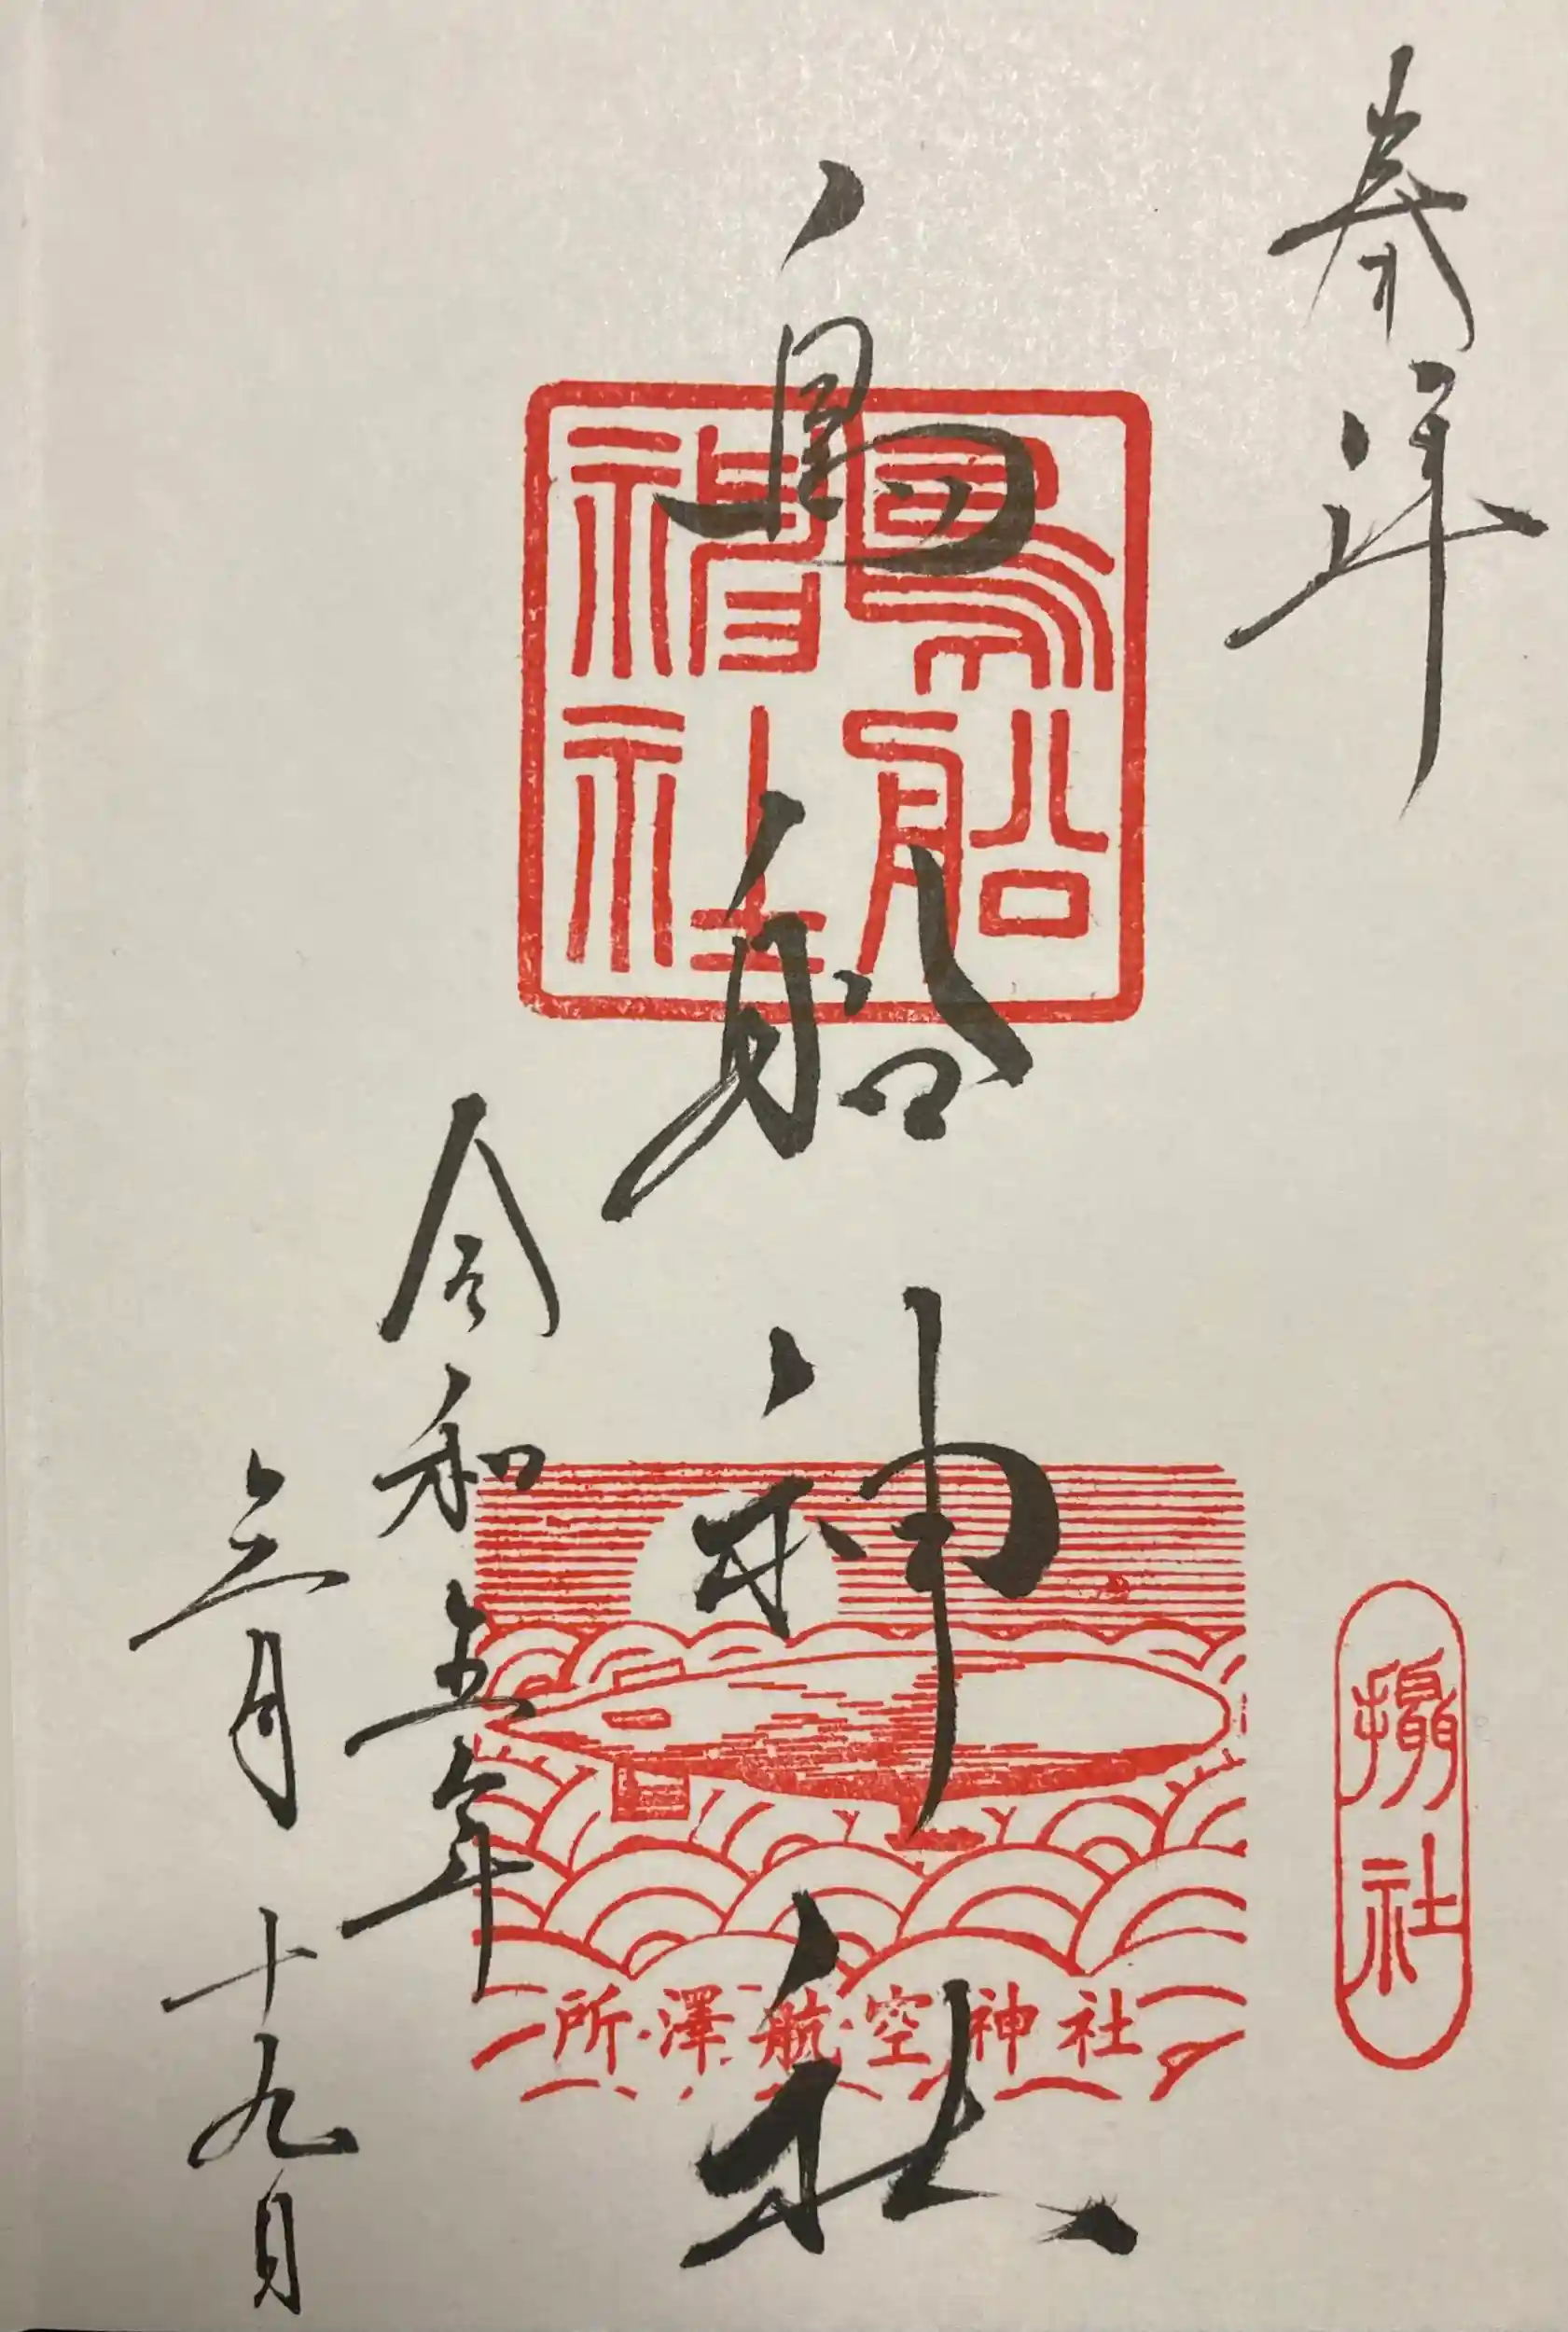 奉拝
鳥船神社
鳥船神社
令和五年
三月十九日
所澤航空神社
摂社